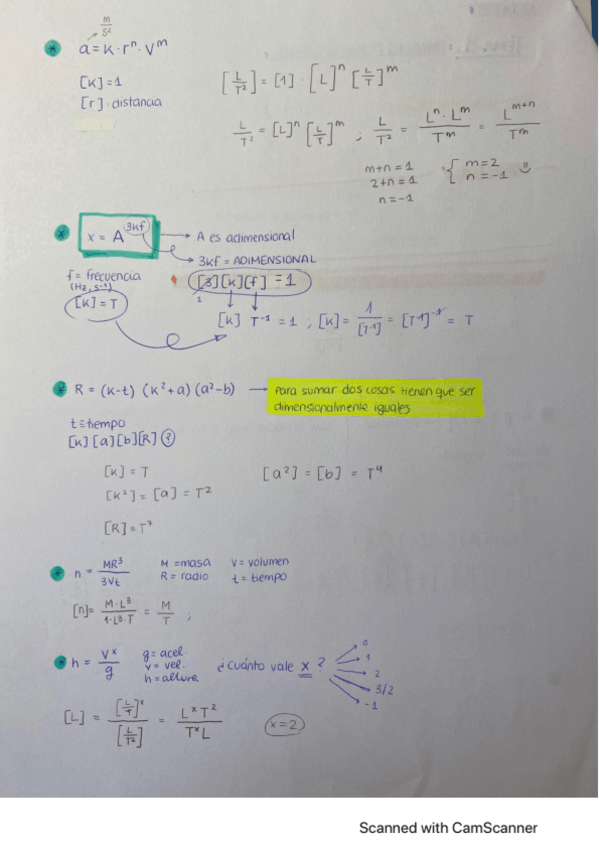 m/s²
* a = k · rⁿ · vᵐ
[k] = 1
[r] = distancia
[L/T²] = [1] · [L]ⁿ [L/T]ᵐ
L/T² = [L]ⁿ [L/T]ᵐ ; L/T² = Lⁿ · Lᵐ / Tᵐ = Lᵐ⁺ⁿ / Tᵐ
m+n = 1
2+n = 1
n = -1
{ m = 2
n = -1
* x = A^3kf → A es adimensional
→ 3kf = ADIMENSIONAL
f = frecuencia
(Hz, s⁻¹)
[k] = T
[3][k][f] = 1
1
[k] T⁻¹ = 1 ; [k] = 1/[T⁻¹] = [T⁻¹]⁻¹ = T
* R = (k-t) (k²+a) (a²-b) → Para sumar dos cosas tienen que ser
dimensionalmente iguales
t = tiempo
[k] [a] [b] [R] ?
[k] = T
[k²] = [a] = T²
[a²] = [b] = T⁴
[R] = T⁷
* n = MR³/3Vt
M = masa V = volumen
R = radio t = tiempo
[n] = M·L³/1·L³·T = M/T ;
* h = vˣ/g
g = acel.
v = vel.
h = altura
¿Cuánto vale x ?
0
1
2
3/2
-1
[L] = [L/T]ˣ / [L/T²] = LˣT² / TˣL
x = 2
Scanned with CamScanner